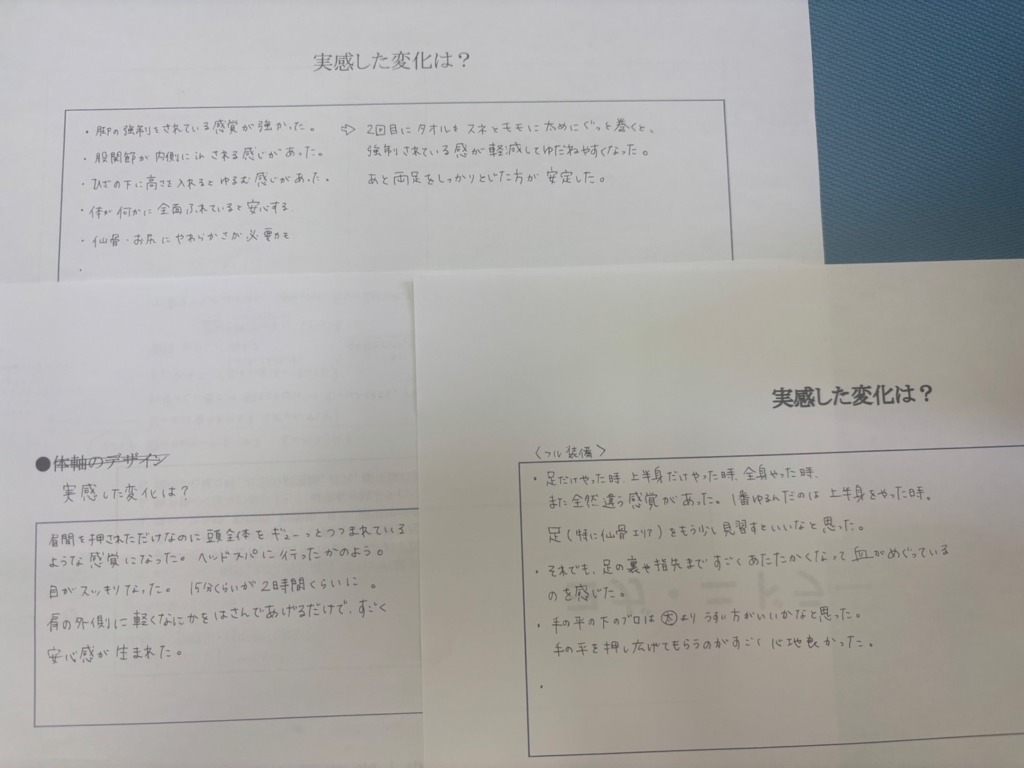 実感した変化は？
・脚の強制をされている感覚が強かった。
・股関節が内側にinされる感じがあった。
・ひざの下に高さを入れるとゆるむ感じがあった。
・体が何かに全面ふれていると安心する
・仙骨・お尻にやわらかさが必要かも
・
⇨ 2回目にタオルをスネとモモに太めにぐっと巻くと、
強制されている感が軽減してゆだねやすくなった。
あと両足をしっかりとじた方が安定した。
●体軸のデザイン
実感した変化は？
眉間を押されただけなのに頭全体をギューっとつつまれている
ような感覚になった。ヘッドスパに行ったかのよう。
目がスッキリなった。15分くらいが2時間くらいに。
肩の外側に軽くなにかをはさんであげるだけで、すごく
安心感が生まれた。
実感した変化は？
〈フル装備〉
・足だけやった時、上半身だけやった時、全身やった時、
また全然違う感覚があった。1番ゆるんだのは上半身をやった時。
足(特に仙骨エリア)をもう少し見習すといいなと思った。
・それでも、足の裏や指先まですごくあたたかくなって血がめぐっている
のを感じた。
・手の平の下のプロは太よりうすい方がいいかなと思った。
手の平を押し広げてもらうのがすごく心地良かった。
・